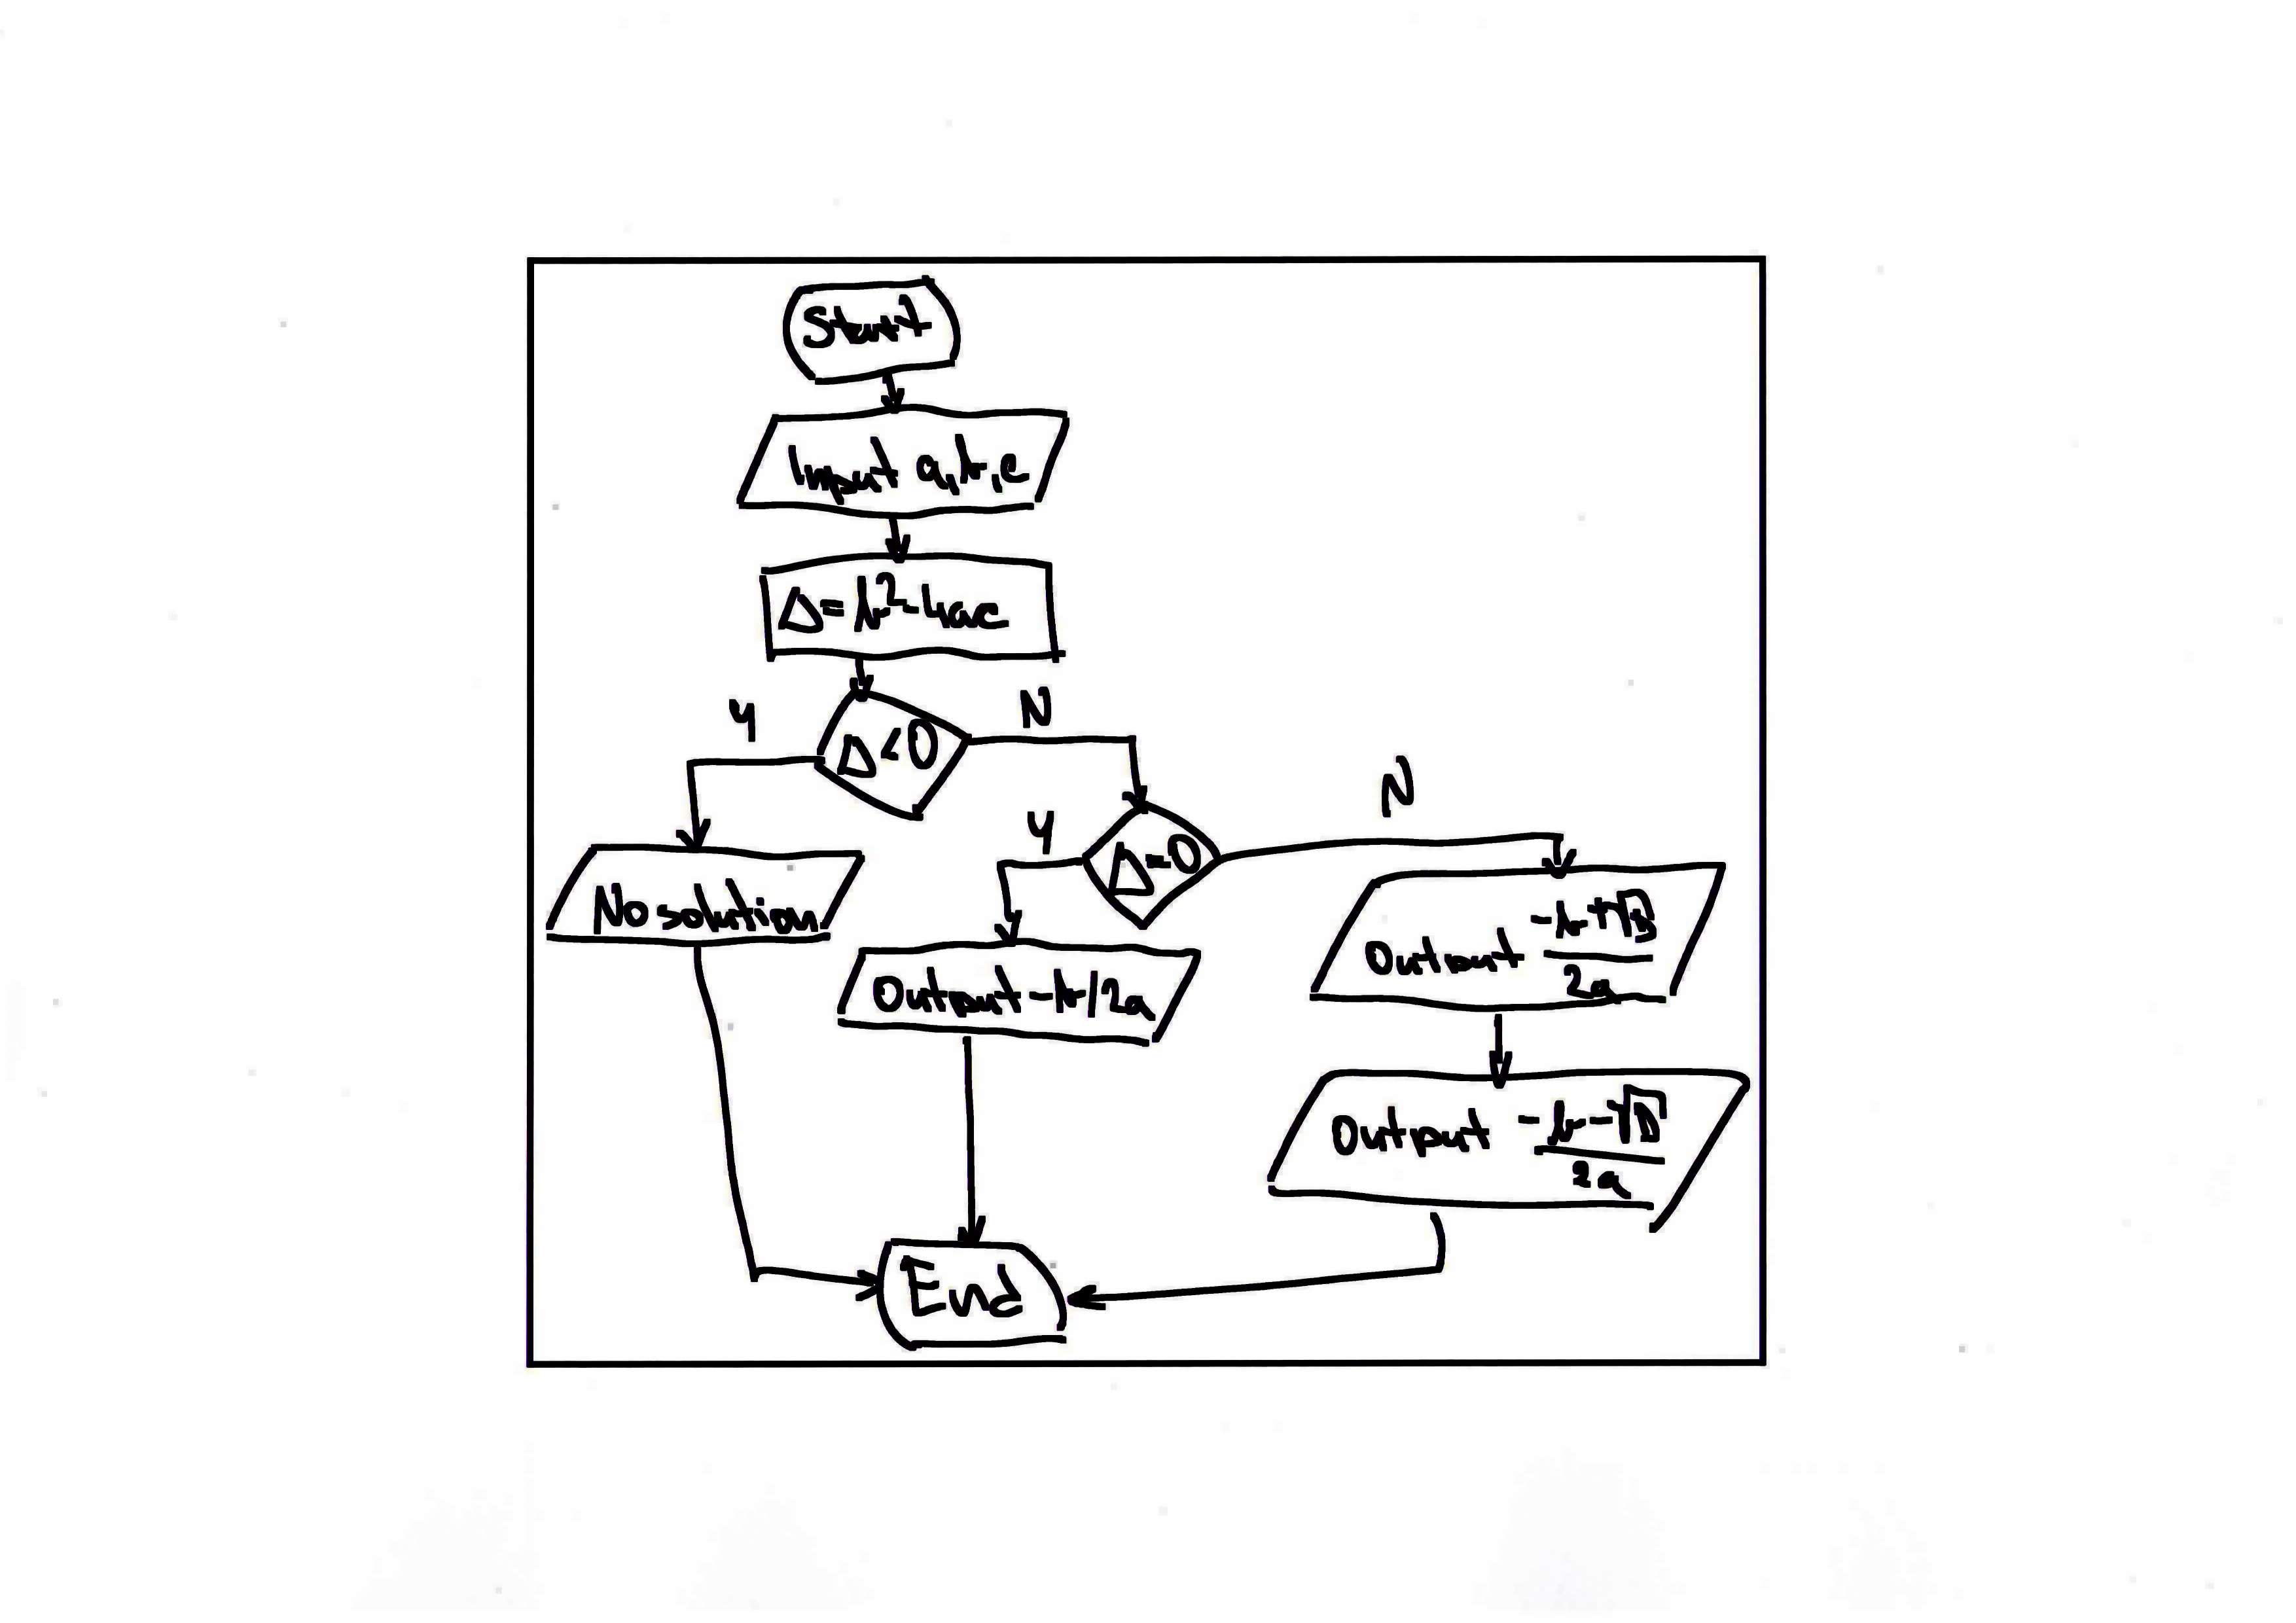 Start
Input a,b,c
Δ=b²-4ac
Y
N
Δ<0
N
Y
Δ=0
No solution
Output -b+√Δ/2a
Output -b/2a
Output -b-√Δ/2a
End